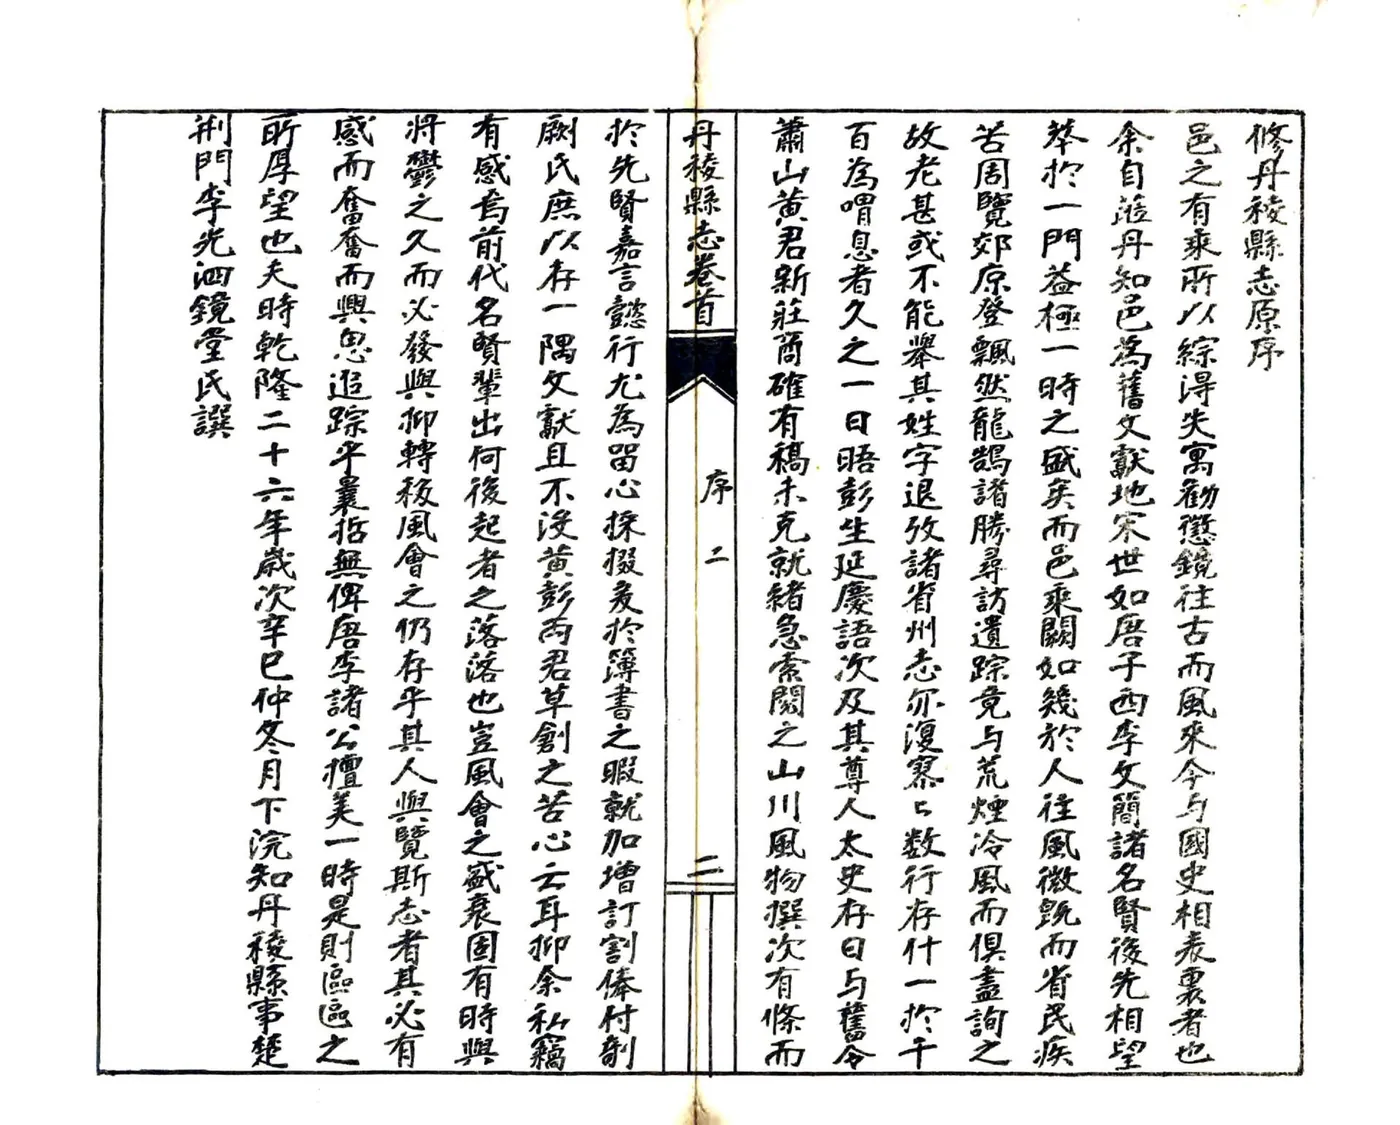 修丹稜縣志原序
邑之有乘所以綜得失寓勸懲鏡往古而風來今与國史相表裏者也
余自蒞丹知邑為舊文獻地宋世如唐子西李文簡諸名賢後先相望
萃於一門益極一時之盛矣而邑乘闕如幾於人往風微旣而省民疾
苦周覽郊原登飄然龍鵠諸勝尋訪遺踪竟与荒煙冷風而俱盡詢之
故老甚或不能舉其姓字退攷諸省州志亦復寥々数行存什一於千
百為喟息者久之一日晤彭生延慶語次及其尊人太史存日与舊令
蕭山黃君新莊商確有稿未克就緒急索閱之山川風物撰次有條而
丹稜縣志卷首
序
二
二
於先賢嘉言懿行尤為留心採掇爰於簿書之暇就加增訂割俸付剞
劂氏庶以存一隅文獻且不沒黃彭兩君草創之苦心云耳抑余私竊
有感焉前代名賢輩出何後起者之落落也豈風會之盛衰固有時與
將鬱之久而必發與抑轉移風會之仍存乎其人與覽斯志者其必有
感而奮奮而興思追踪乎曩哲無俾唐李諸公擅美一時是則區區之
所厚望也夫時乾隆二十六年歲次辛巳仲冬月下浣知丹稜縣事楚
荆門李光泗鏡堂氏譔